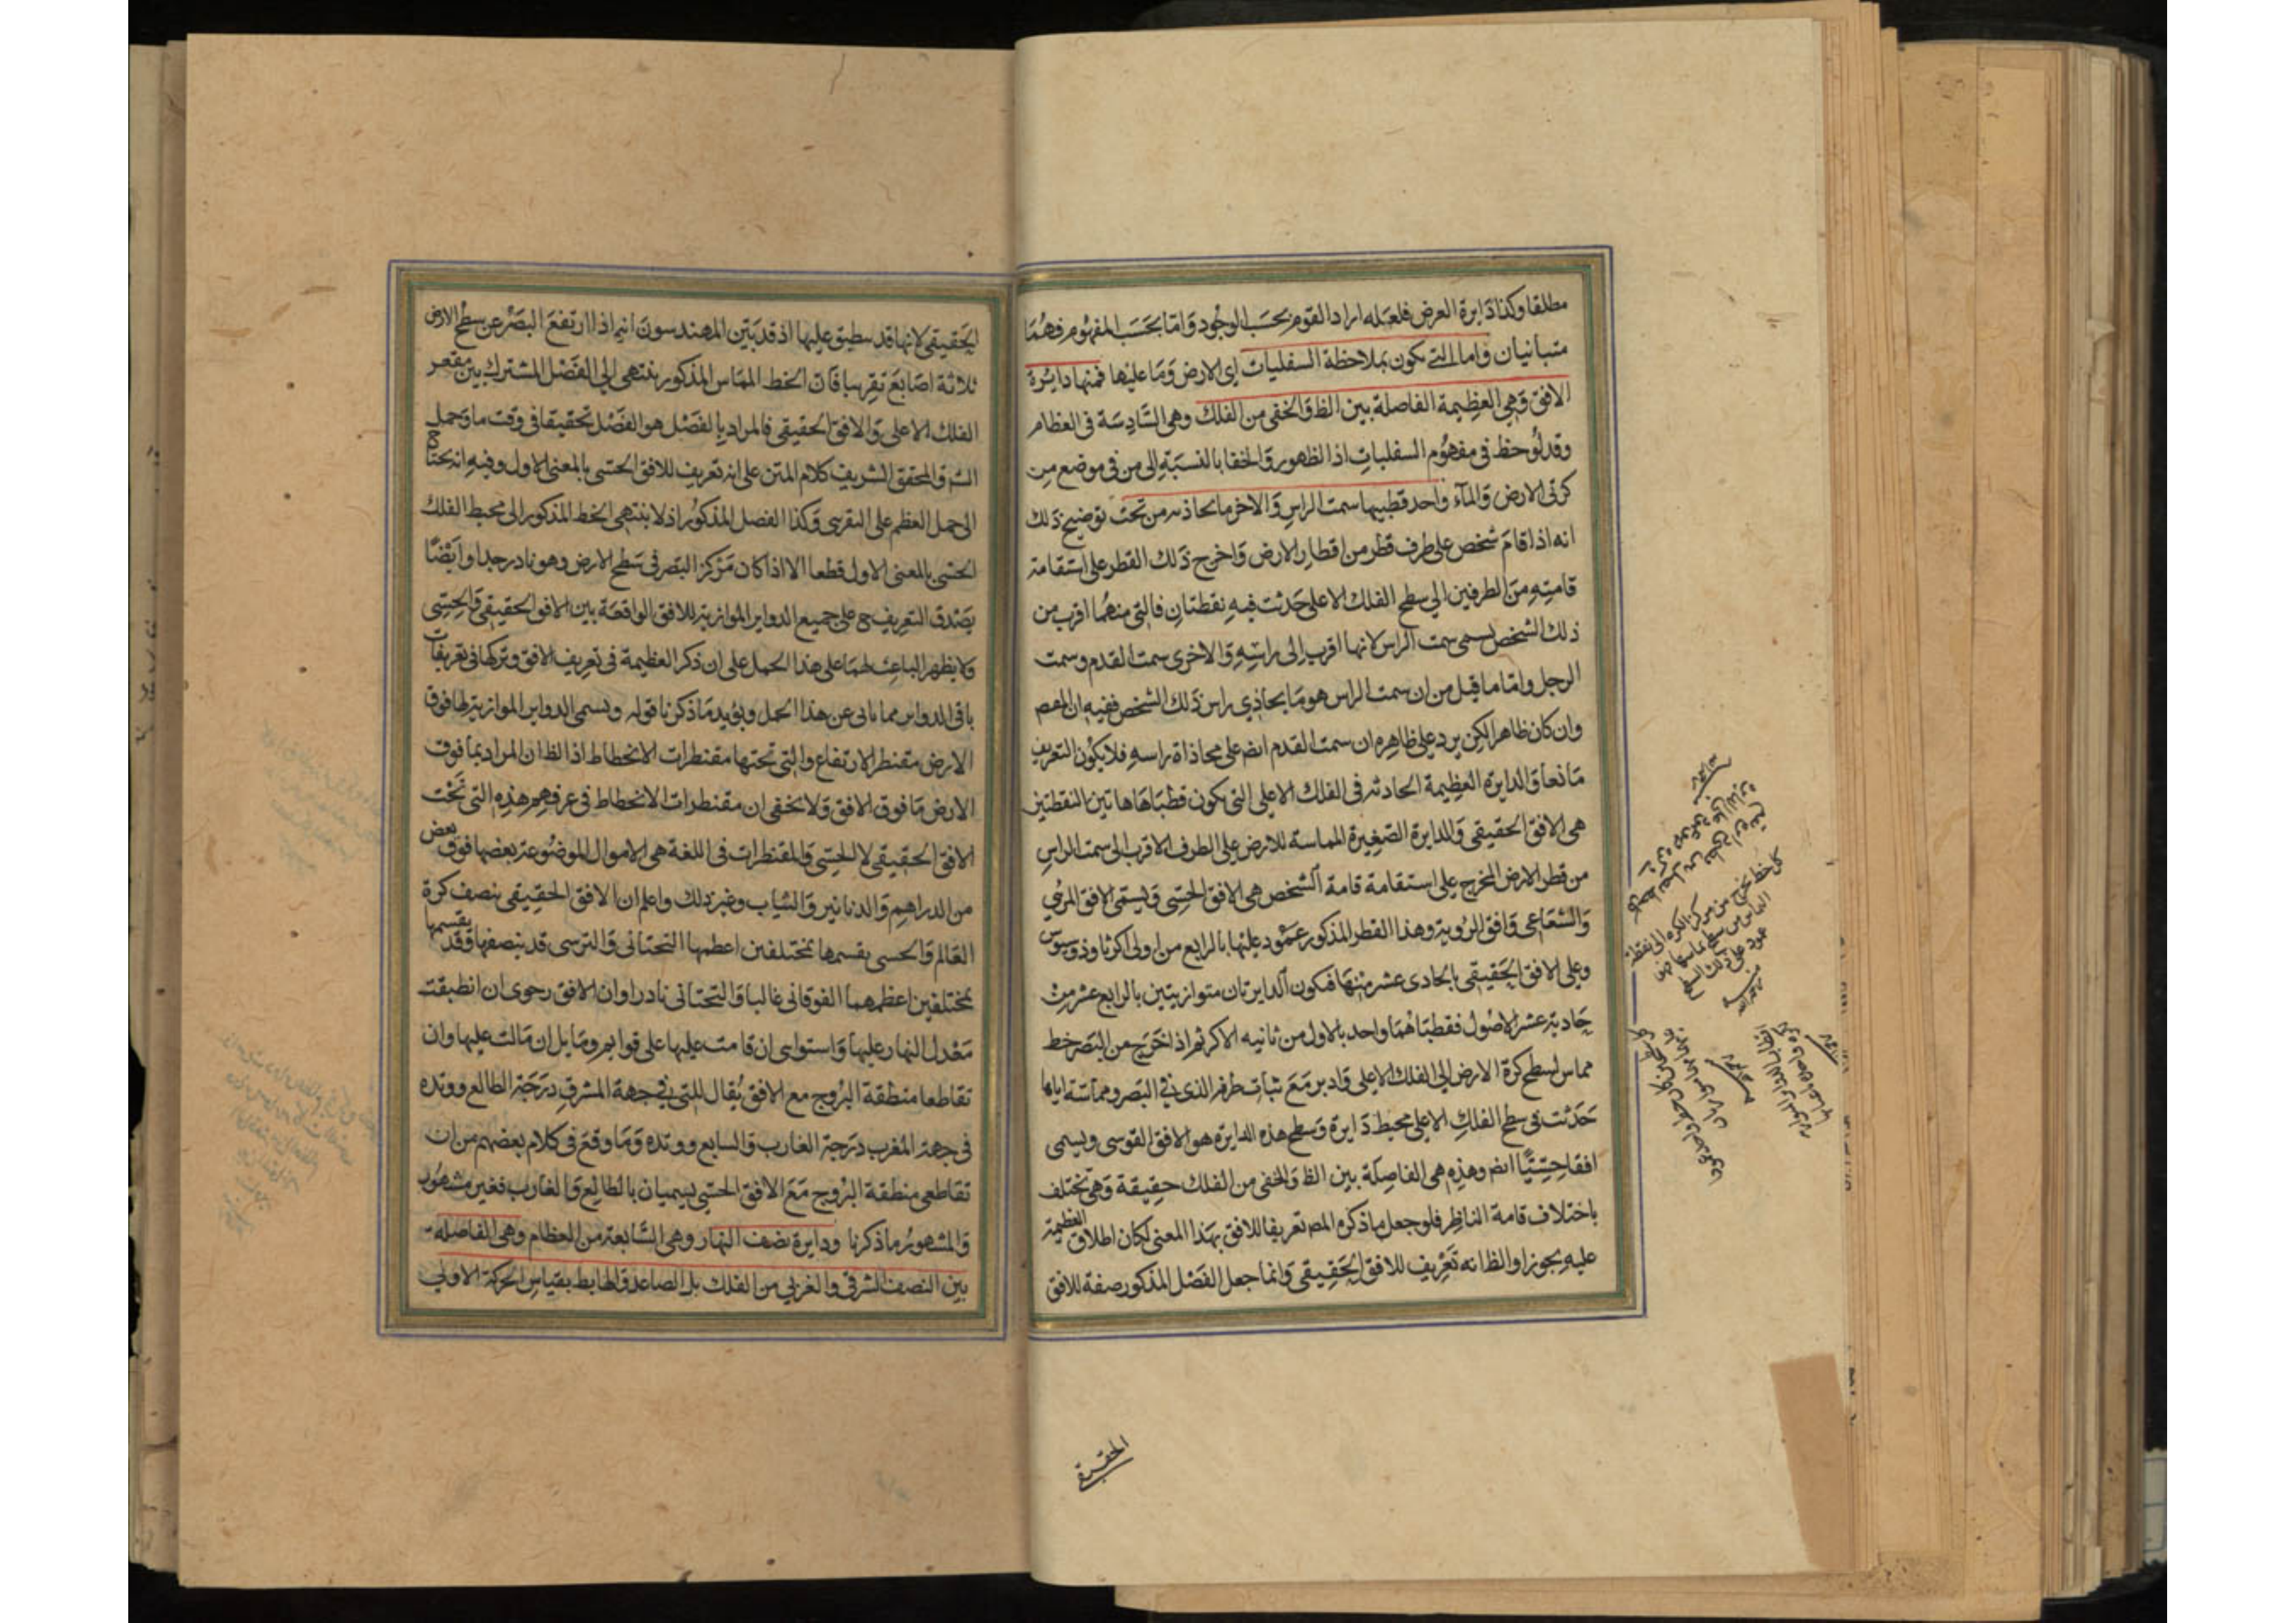 مطلقا وكذا دايرة العرض فلعله اراد القوم بحسب الوجود واما بحسب المفهوم فهما
متبانيان واما التى يكون بملاحظة السفليات اى الارض وما عليها فمنها دايرة
الافق وهى العظيمة الفاصلة بين الظ والخفى من الفلك وهى السادسة فى العظام
وقد لوحظ فى مفهوم السفليات اذا الظهور والخفا بالنسبة الى من فى موضع من
كرتى الارض والمآء واحد قطبيها سمت الراس والاخر ما يحاذيه من تحت توضيح ذلك
انه اذا قام شخص على طرف قطر من اقطار الارض واخرج ذلك القطر على استقامة
قامته من الطرفين الى سطح الفلك الاعلى حدثت فيه نقطتان فالتى منهما اقرب من
ذلك الشخص يسمى سمت الراس لانها اقرب الى راسه والاخرى سمت القدم وسمت
الرجل واما ما قيل من ان سمت الراس هو ما يحاذي راس ذلك الشخص ففيه ان المعم
وان كان ظاهرا لكن يرد على ظاهره ان سمت القدم ايض على محاذاة راسه فلا يكون التعريف
مانعا والدايرة العظيمة الحادثة فى الفلك الاعلى التى يكون قطباها هاتين النقطتين
هى الافق الحقيقى والدايرة الصغيرة المماسة للارض على الطرف الاقرب الى سمت الراس
من قطر الارض المخرج على استقامة قامة الشخص هى الافق الحسى ويسمى الافق المرئي
والشعاعى وافق الروية وهذا القطر المذكور عمود عليها بالرابع من اولى اكر ثاوذوسيوس
وعلى الافق الحقيقى بالحادى عشر منها فيكون الدايرتان متوازيتين بالرابع عشر من
حادية عشر الاصول فقطباهما واحد بالاول من ثانيه الاكر ثم اذا اخرج من البصر خط
مماس لسطح كرة الارض الى الفلك الاعلى وادير مع ثبات طرفه الذى فى البصر ومماسته اياها
حدثت فى سطح الفلك الاعلى محيط دايرة وسطح هذه الدايرة هو الافق القوسى ويسمى
افقا حسيا ايض وهذه هى الفاصلة بين الظ والخفى من الفلك حقيقة وهى تختلف
باختلاف قامة الناظر فلو جعل ما ذكره المص تعريفا للافق بهذا المعنى لكان اطلاق العظيمة
عليه تجوزا والظ انه تعريف للافق الحقيقى وانما جعل الفصل المذكور صفة للافق
الحقيقى
كل خط يخرج من مركز الكره الى نقطة
التماس من سطح يماسها فهو
عمود على ذلك السطح
الحقيقى لانها قد ينطبق عليها اذ قد بين المهندسون انه اذا ارتفع البصر عن سطح الارض
ثلاثة اصابع تقريبا فان الخط المماس المذكور ينتهى الى الفصل المشترك بين مقعر
الفلك الاعلى والافق الحقيقى فالمراد بالفصل هو الفصل تحقيقا فى وقت ما وحمل
الش والمحقق الشريف كلام المتن على انه تعريف للافق الحسى بالمعنى الاول وفيه انه يحتاج
الى حمل العظم على التقربى وكذا الفصل المذكور اذ لا ينتهى الخط المذكور الى محيط الفلك
الحسى بالمعنى الاول قطعا الا اذا كان مركز البصر فى سطح الارض وهو نادر جدا وايضا
يصدق التعريف ح على جميع الدواير الموازية للافق الواقعة بين الافق الحقيقى والحسى
ولا يظهر الباعث لهما على هذا الحمل على ان ذكر العظيمة فى تعريف الافق وتركها فى تعريفات
باقى الدواير مما يابى عن هذا الحمل ويؤيد ما ذكرنا قوله ويسمى الدواير الموازية لها فوق
الارض مقنطرات الارتفاع والتى تحتها مقنطرات الانحطاط اذ الظ ان المراد بما فوق
الارض ما فوق الافق ولا يخفى ان مقنطرات الانحطاط فى عرفهم هذه التى تحت
الافق الحقيقى لا الحسى والمقنطرات فى اللغة هى الاموال الموضوعة بعضها فوق بعض
من الدراهم والدنانير والثياب وغير ذلك واعلم ان الافق الحقيقى ينصف كرة
العالم والحسى يقسمها بمختلفين اعظمها التحتانى والترسى قد ينصفها وقد يقسمها
بمختلفين اعظمهما الفوقانى غالبا والتحتانى نادرا وان الافق رحوى ان انطبقت
معدل النهار عليها واستواى ان قامت عليها على قوايم ومايل ان مالت عليها وان
تقاطعا منطقة البروج مع الافق يقال للتى فى جهة المشرق درجة الطالع ووتده
فى جهة المغرب درجة الغارب والسابع ووتده وما وقع فى كلام بعضهم من ان
تقاطعى منطقة البروج مع الافق الحسى يسميان بالطالع والغارب فغير مشهور
والمشهور ما ذكرنا ودايرة نصف النهار وهى السابعة من العظام وهى الفاصلة
بين النصف الشرقى والغربى من الفلك بل الصاعد والهابط بقياس الحركة الاولى